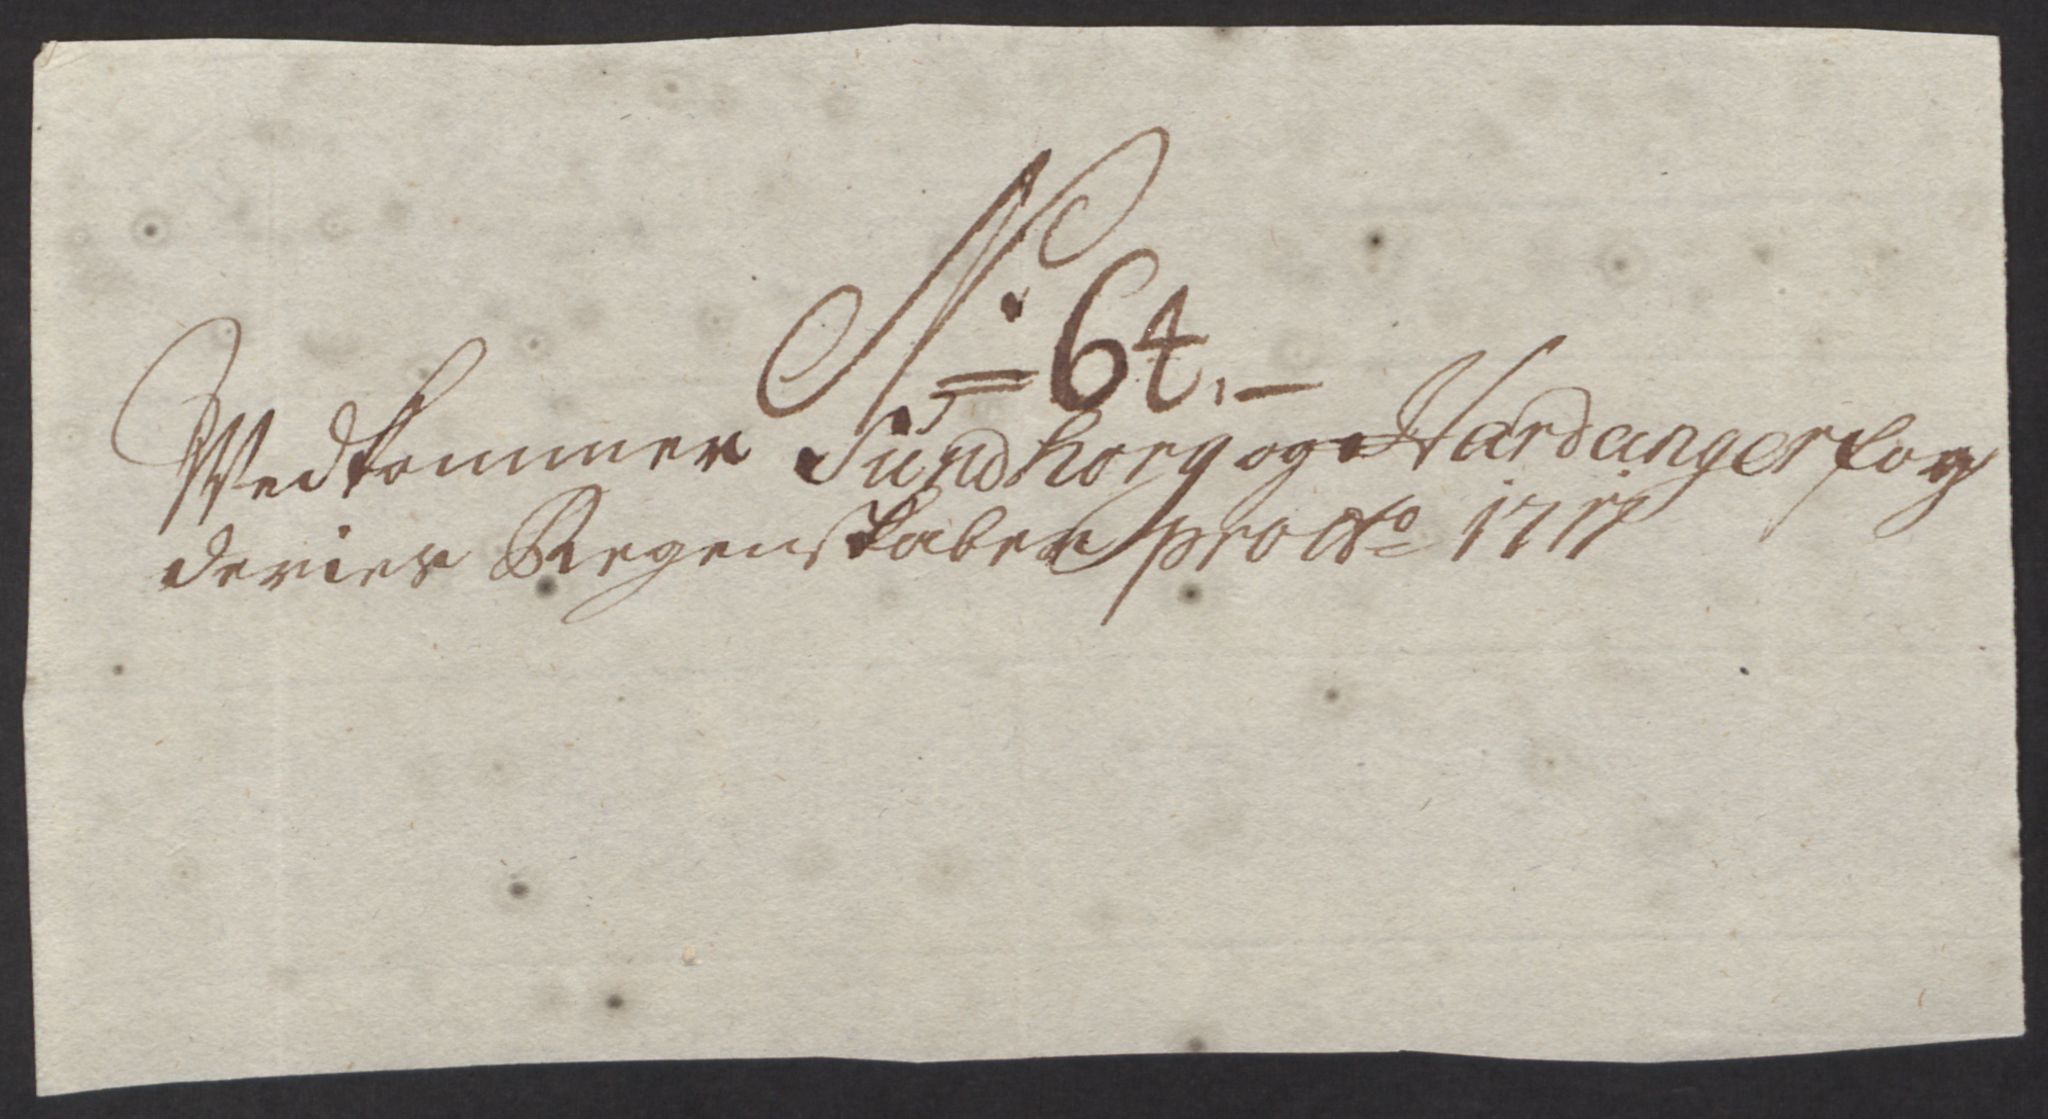 No 64.—
Vedkommer Sundhorg og Hardanger fog
derier Regenskaber pro Ao 1717